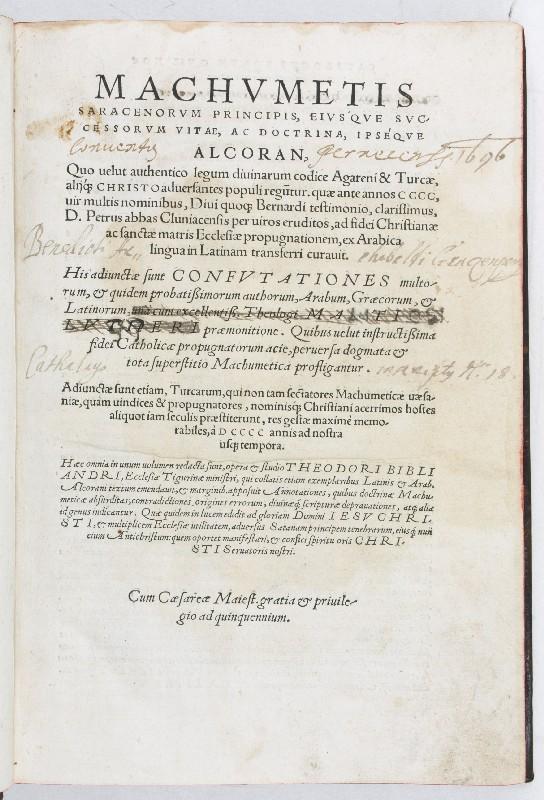 MACHVMETIS
SARACENORVM PRINCIPIS, EIVSQVE SVC-
CESSORVM VITAE, AC DOCTRINA, IPSEQVE
Conuentus
ALCORAN,
1696
Quo uelut authentico legum diuinarum codice Agareni & Turcæ,
alijq; CHRISTO aduersantes populi regũtur. quæ ante annos CCCC,
uir multis nominibus, Diui quoq; Bernardi testimonio, clarissimus,
D. Petrus abbas Cluniacensis per uiros eruditos, ad fidei Christianæ
ac sanctæ matris Ecclesiæ propugnationem, ex Arabica
lingua in Latinam transferri curauit.
His adiunctæ sunt CONFVTATIONES multo-
rum, & quidem probatissimorum authorum, Arabum, Græcorum, &
Latinorum, una cum excellentiss. Theologi MARTINI
LVTHERI præmonitione. Quibus uelut instructissima
fidei Catholicæ propugnatorum acie, peruersa dogmata &
tota superstitio Machumetica profligantur.
Adiunctæ sunt etiam, Turcarum, qui non tam sectatores Machumeticæ uæsa-
niæ, quàm uindices & propugnatores, nominisq; Christiani acerrimos hostes
aliquot iam seculis præstiterunt, res gestæ maximè memo-
rabiles, à DCCCC annis ad nostra
usq; tempora.
Hæc omnia in unum uolumen redacta sunt, opera & studio THEODORI BIBLI
ANDRI, Ecclesiæ Tigurinæ ministri, qui collatis etiam exemplaribus Latinis & Arab.
Alcorani textum emendauit, & marginib. apposuit Annotationes, quibus doctrinæ Machu-
meticæ absurditas, contradictiones, origines errorum, diuinæq; scripturæ deprauationes, atq; alia
id genus indicantur. Quæ quidem in lucem edidit ad gloriam Domini IESV CHRI-
STI, & multiplicem Ecclesiæ utilitatem, aduersus Satanam principem tenebrarum, eiusq; nun
cium Antichristum: quem oportet manifestari, & confici spiritu oris CHRI-
STI Seruatoris nostri.
Cum Cæsareæ Maiest. gratia & priuile-
gio ad quinquennium.